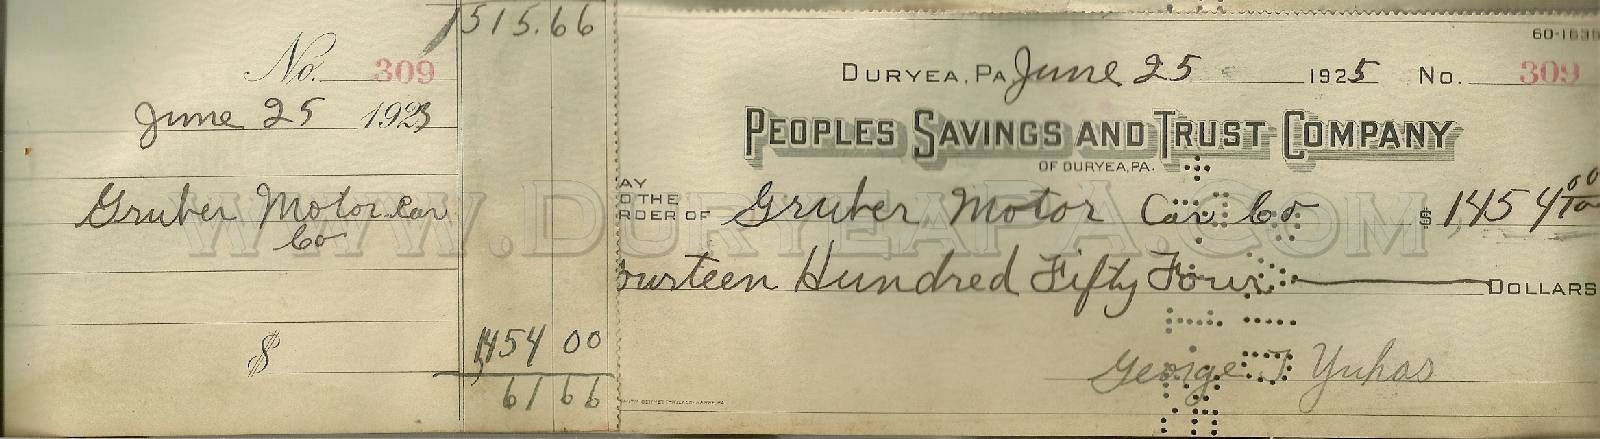 1515.66
No. 309
June 25 1923
Gruber Motor Car
Co
$ 1,454 00
61 66
60-1835
DURYEA, PA. June 25 1925 No. 309
PEOPLES SAVINGS AND TRUST COMPANY
OF DURYEA, PA.
AY
O THE
RDER OF Gruber Motor Car Co $ 1,454 00/100
ourteen Hundred Fifty Four DOLLARS
George J Yuhas
WWW.DURYEAPA.COM